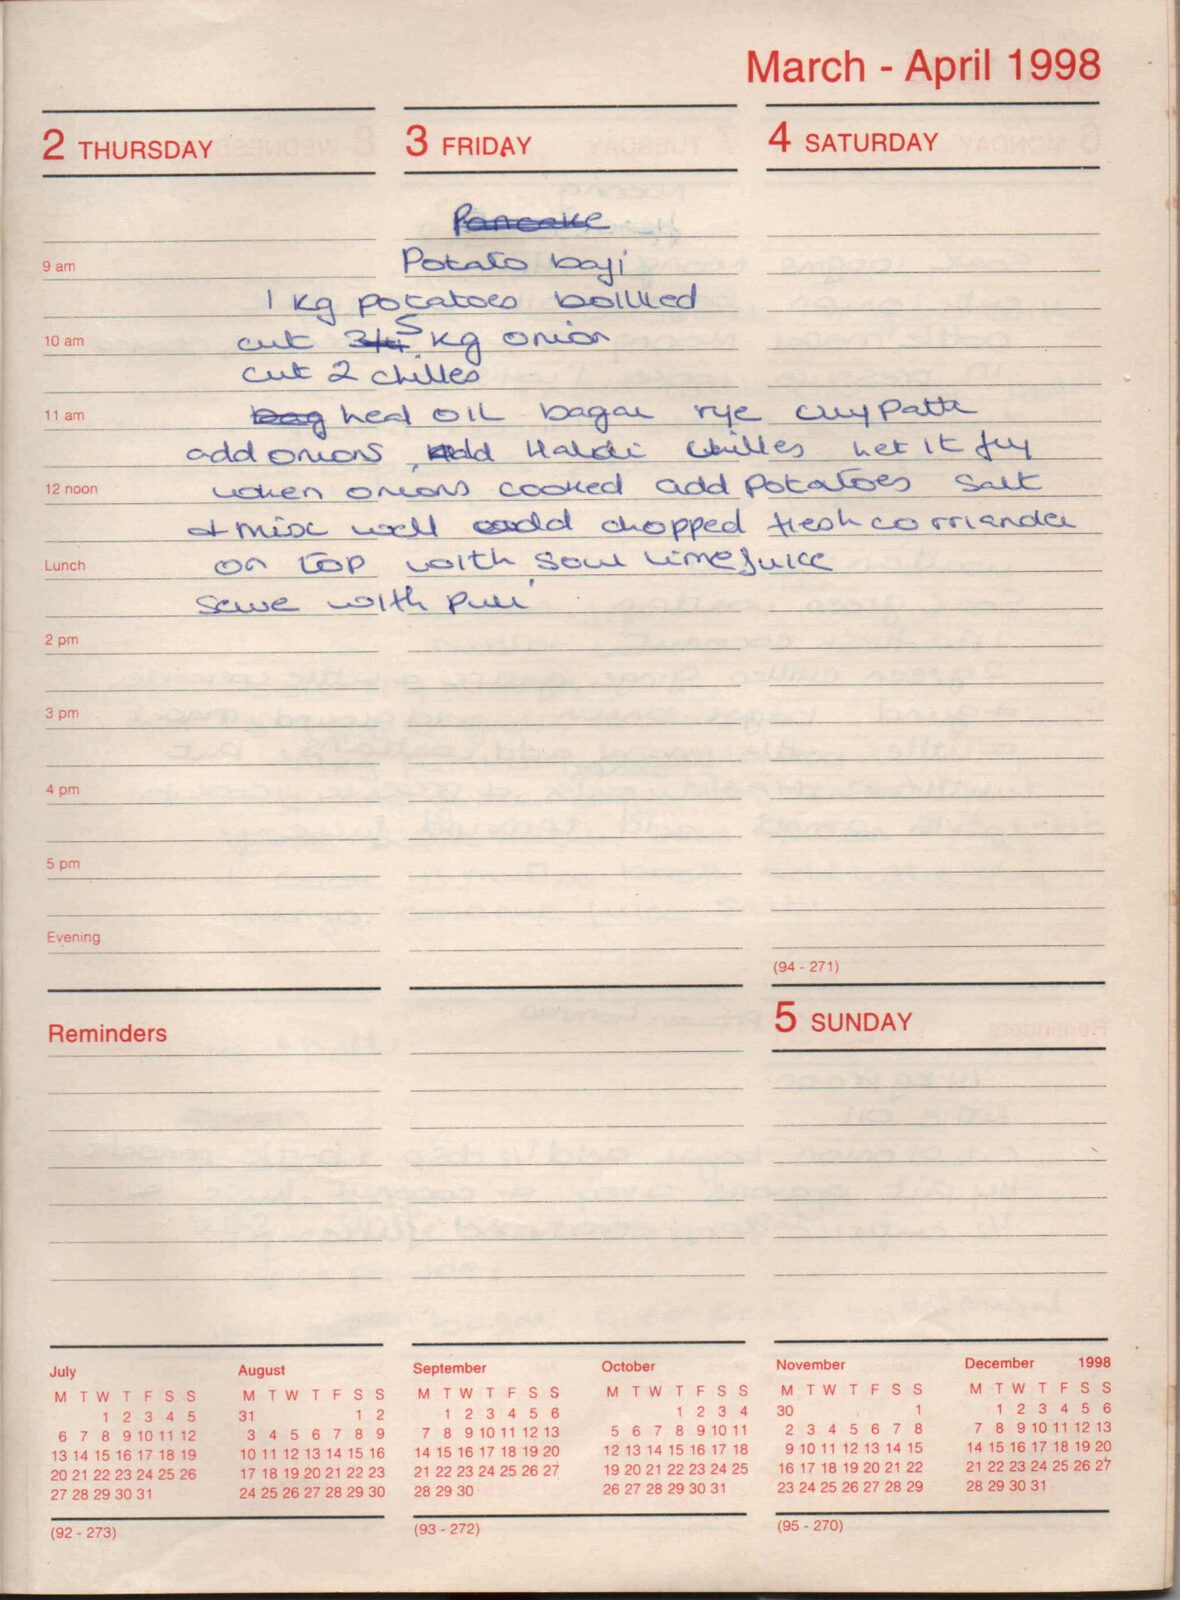 March - April 1998
2 THURSDAY
3 FRIDAY
4 SATURDAY
Pancake
9 am
Potato baji
1 kg potatoes boillied
10 am
cut 3/4 .5 kg onion
cut 2 chilles
11 am
bag heat oil bagar rye curypatta
add onions, add Haldi chilles let it fry
12 noon
when onions cooked add potatoes salt
& mix well add chopped fresh corriander
Lunch
on top with sour lime juice
serve with puri
2 pm
3 pm
4 pm
5 pm
Evening
(94 - 271)
Reminders
5 SUNDAY
July
M T W T F S S
1 2 3 4 5
6 7 8 9 10 11 12
13 14 15 16 17 18 19
20 21 22 23 24 25 26
27 28 29 30 31
August
M T W T F S S
31 1 2
3 4 5 6 7 8 9
10 11 12 13 14 15 16
17 18 19 20 21 22 23
24 25 26 27 28 29 30
September
M T W T F S S
1 2 3 4 5 6
7 8 9 10 11 12 13
14 15 16 17 18 19 20
21 22 23 24 25 26 27
28 29 30
October
M T W T F S S
1 2 3 4
5 6 7 8 9 10 11
12 13 14 15 16 17 18
19 20 21 22 23 24 25
26 27 28 29 30 31
November
M T W T F S S
30 1
2 3 4 5 6 7 8
9 10 11 12 13 14 15
16 17 18 19 20 21 22
23 24 25 26 27 28 29
December 1998
M T W T F S S
1 2 3 4 5 6
7 8 9 10 11 12 13
14 15 16 17 18 19 20
21 22 23 24 25 26 27
28 29 30 31
(92 - 273)
(93 - 272)
(95 - 270)